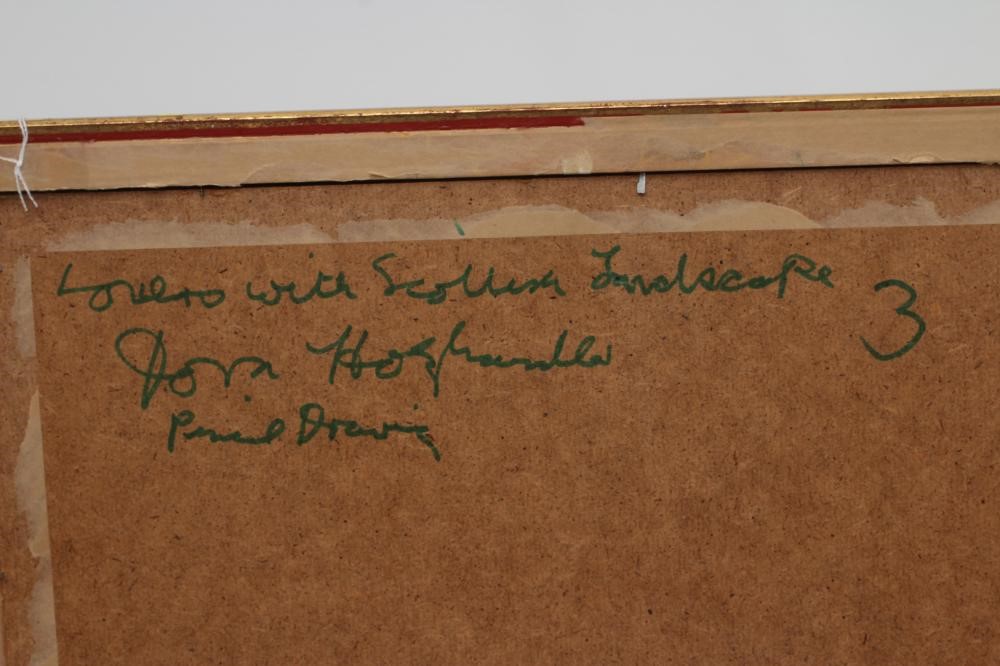 Lovers with Scottish Landscape
3
Dora Holzhandler
Pencil Drawing